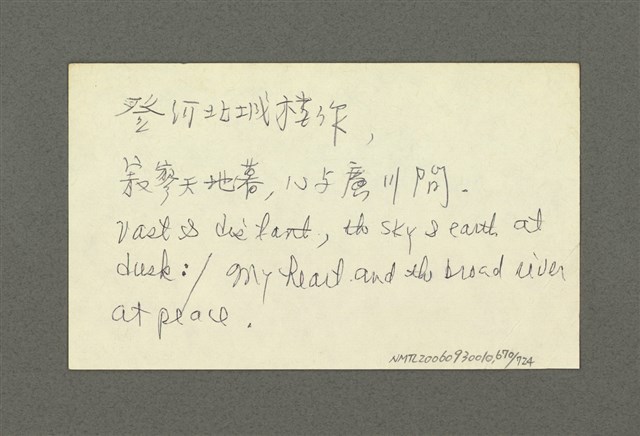 登河北城樓作,
寂寥天地暮,心与廣川閒.
Vast & distant, the sky & earth at
dusk:/ My heart and the broad river
at peace.
NMTL20060930010,670/724